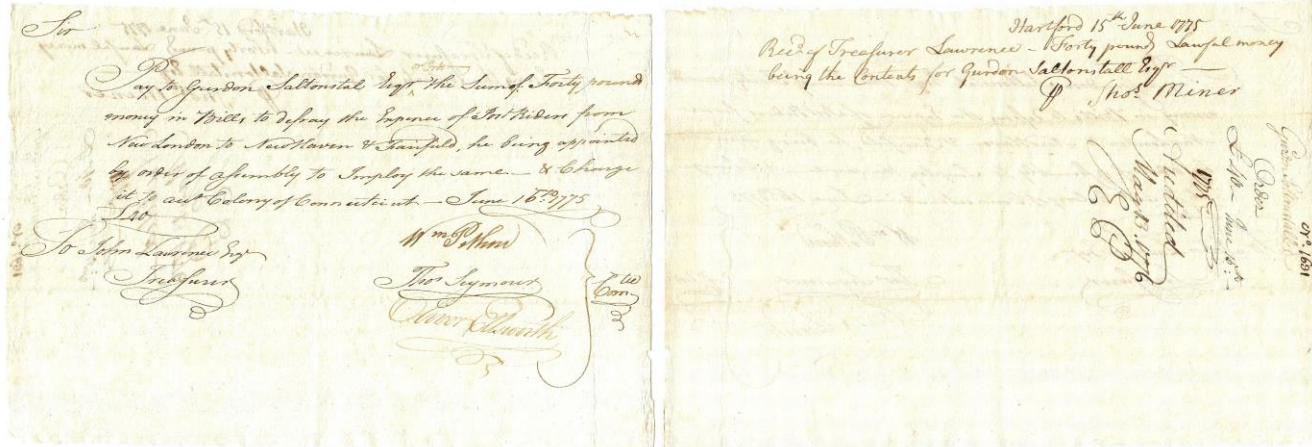 Sir
Pay to Gurdon Saltonstal Esqr, or Order the Sum of Forty pounds
money in Bills to defray the Expence of Post Riders from
New London to New Haven & Fairfield, he being appointed
by order of Assembly to Imploy the same — & Charge
it to acct Colony of Connecticut — June 15th 1775
£40
To John Lawrence Esqr
Treasurer
Wm Pitkin
Thos Seymour
Oliver Ellsworth
Comtee
Hartford 15th June 1775
Recd of Treasurer Lawrence — Forty pounds Lawful money
being the Contents for Gurdon Saltonstall Esqr —
Thos Miner
No. 1681
Gurdn Saltonstall
Order
£40 — June 15th
1775
Audited
May 1776